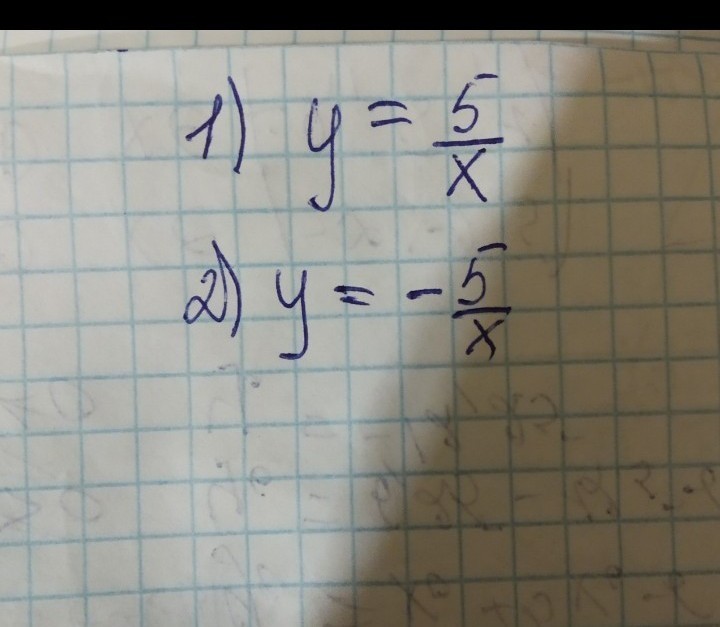 1) y = 5/x
2) y = - 5/x